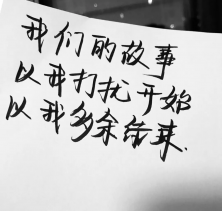 我们的故事
以我打扰开始
以我多余结束.